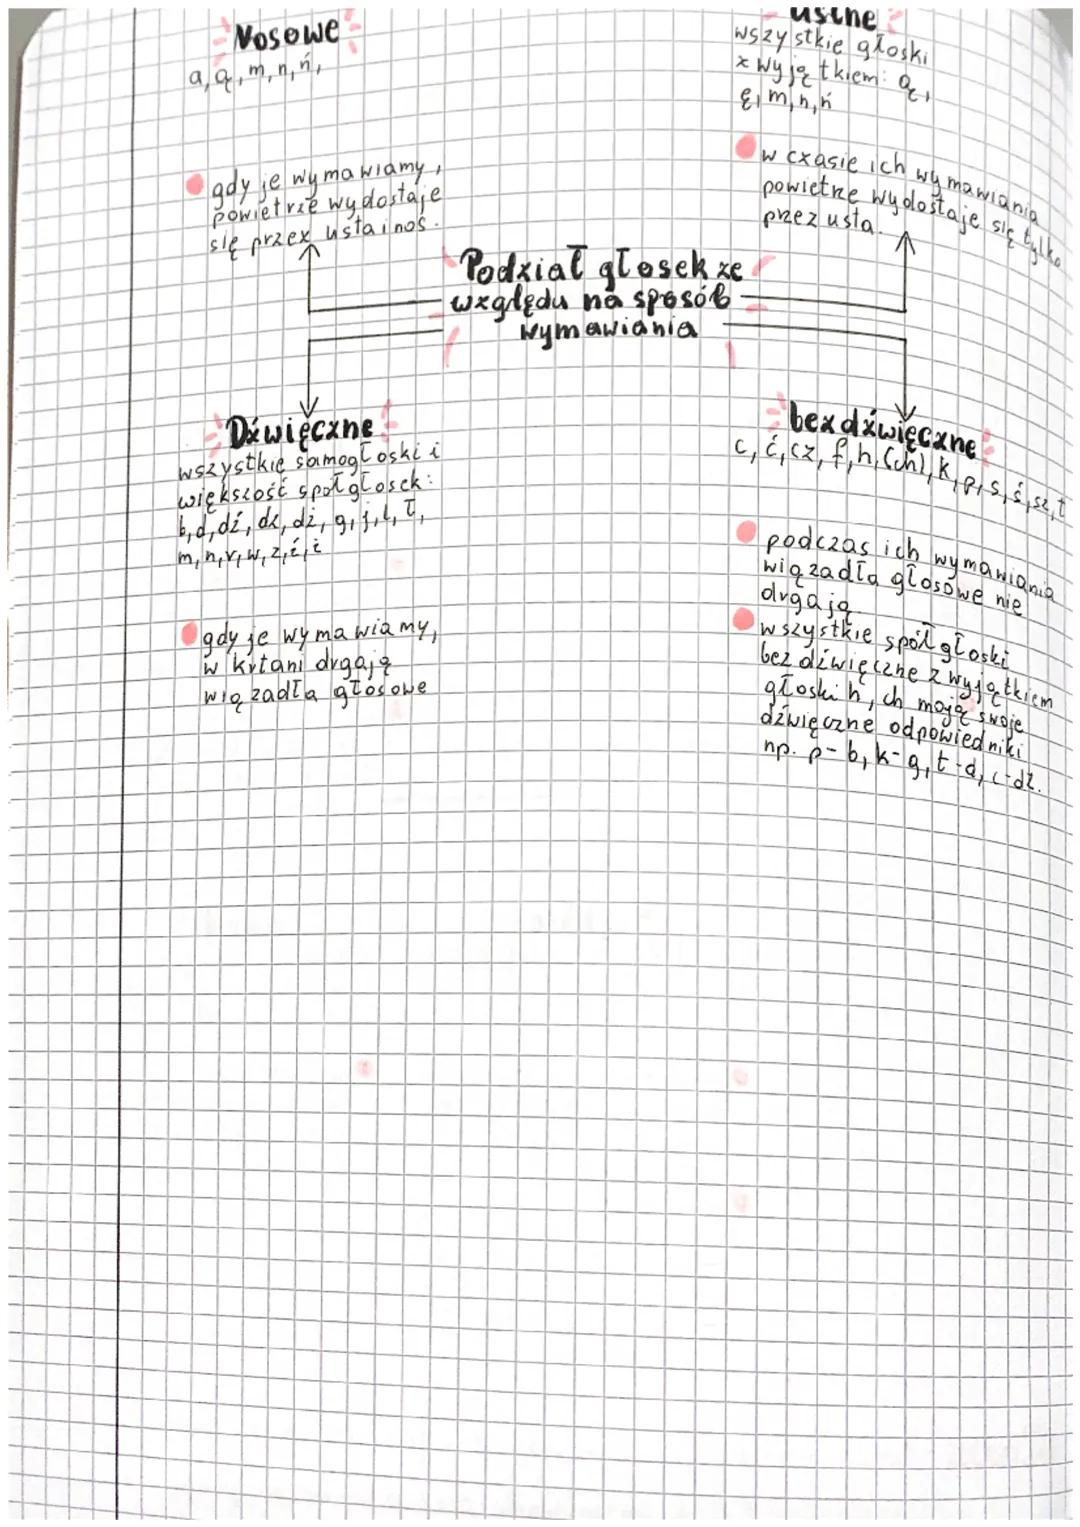 Nosowe
a, ą, m, n, ń,
gdy je wymawiamy,
powietrze wydostaje
się przez usta i nos.
ustne
wszystkie głoski
z wyjątkiem: ą,
ę, m, n, ń
w czasie ich wymawiania
powietrze wydostaje się tylko
przez usta.
Podział głosek ze
względu na sposób
wymawiania
Dźwięczne
wszystkie samogłoski i
większość spółgłosek:
b, d, dź, dz, dż, g, j, l, ł,
m, n, r, w, z, ź, ż
gdy je wymawiamy,
w krtani drgają
wiązadła głosowe
bezdźwięczne
c, ć, cz, f, h, (ch), k, p, s, ś, sz, t
podczas ich wymawiania
wiązadła głosowe nie
drgają
wszystkie spółgłoski
bezdźwięczne z wyjątkiem
głoski h, ch mają swoje
dźwięczne odpowiedniki
np. p-b, k-g, t-d, c-dz.